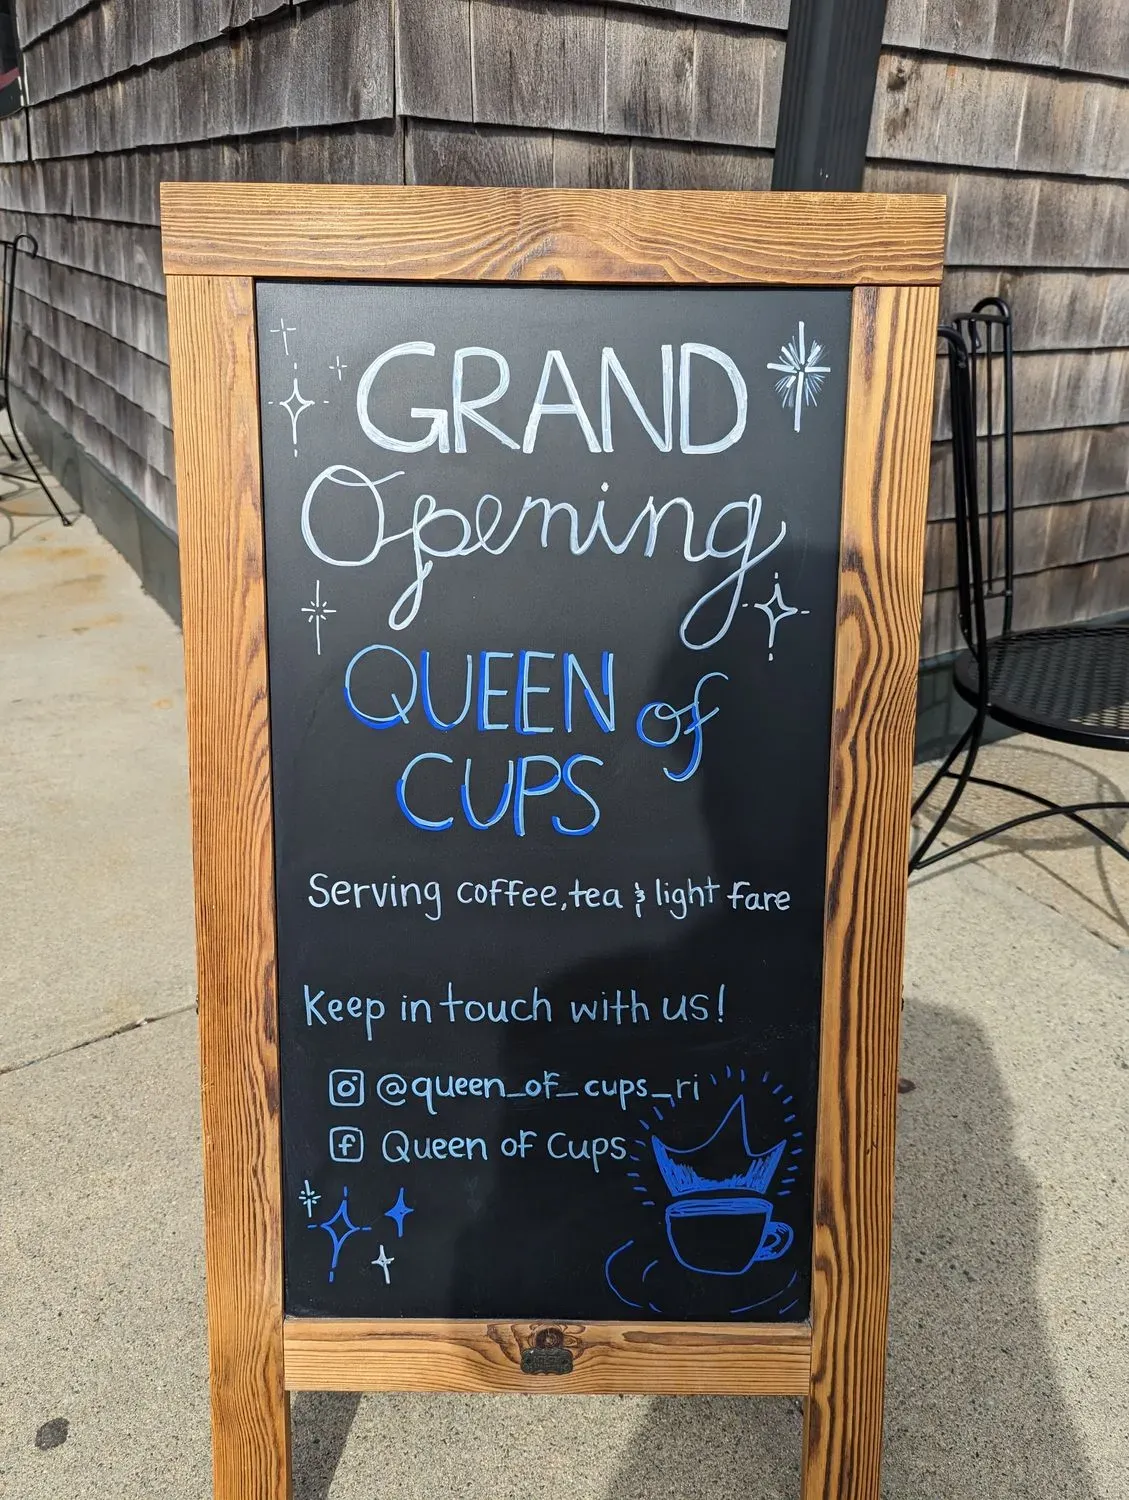 GRAND
Opening
QUEEN of
CUPS
Serving coffee, tea & light fare
Keep in touch with us!
@queen_of_cups_ri
Queen of Cups